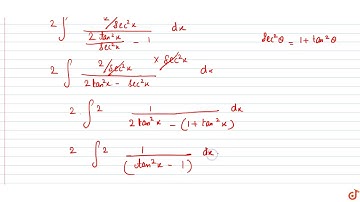 2 ∫ x/sec²x / (2tan²x/sec²x − 1) dx sec²θ = 1 + tan²θ
2 ∫ 2/sec²x × sec²x / (2tan²x − sec²x) dx
2. ∫ 2 1 / (2tan²x − (1 + tan²x)) dx
2 ∫ 2 1 / (tan²x − 1) dx